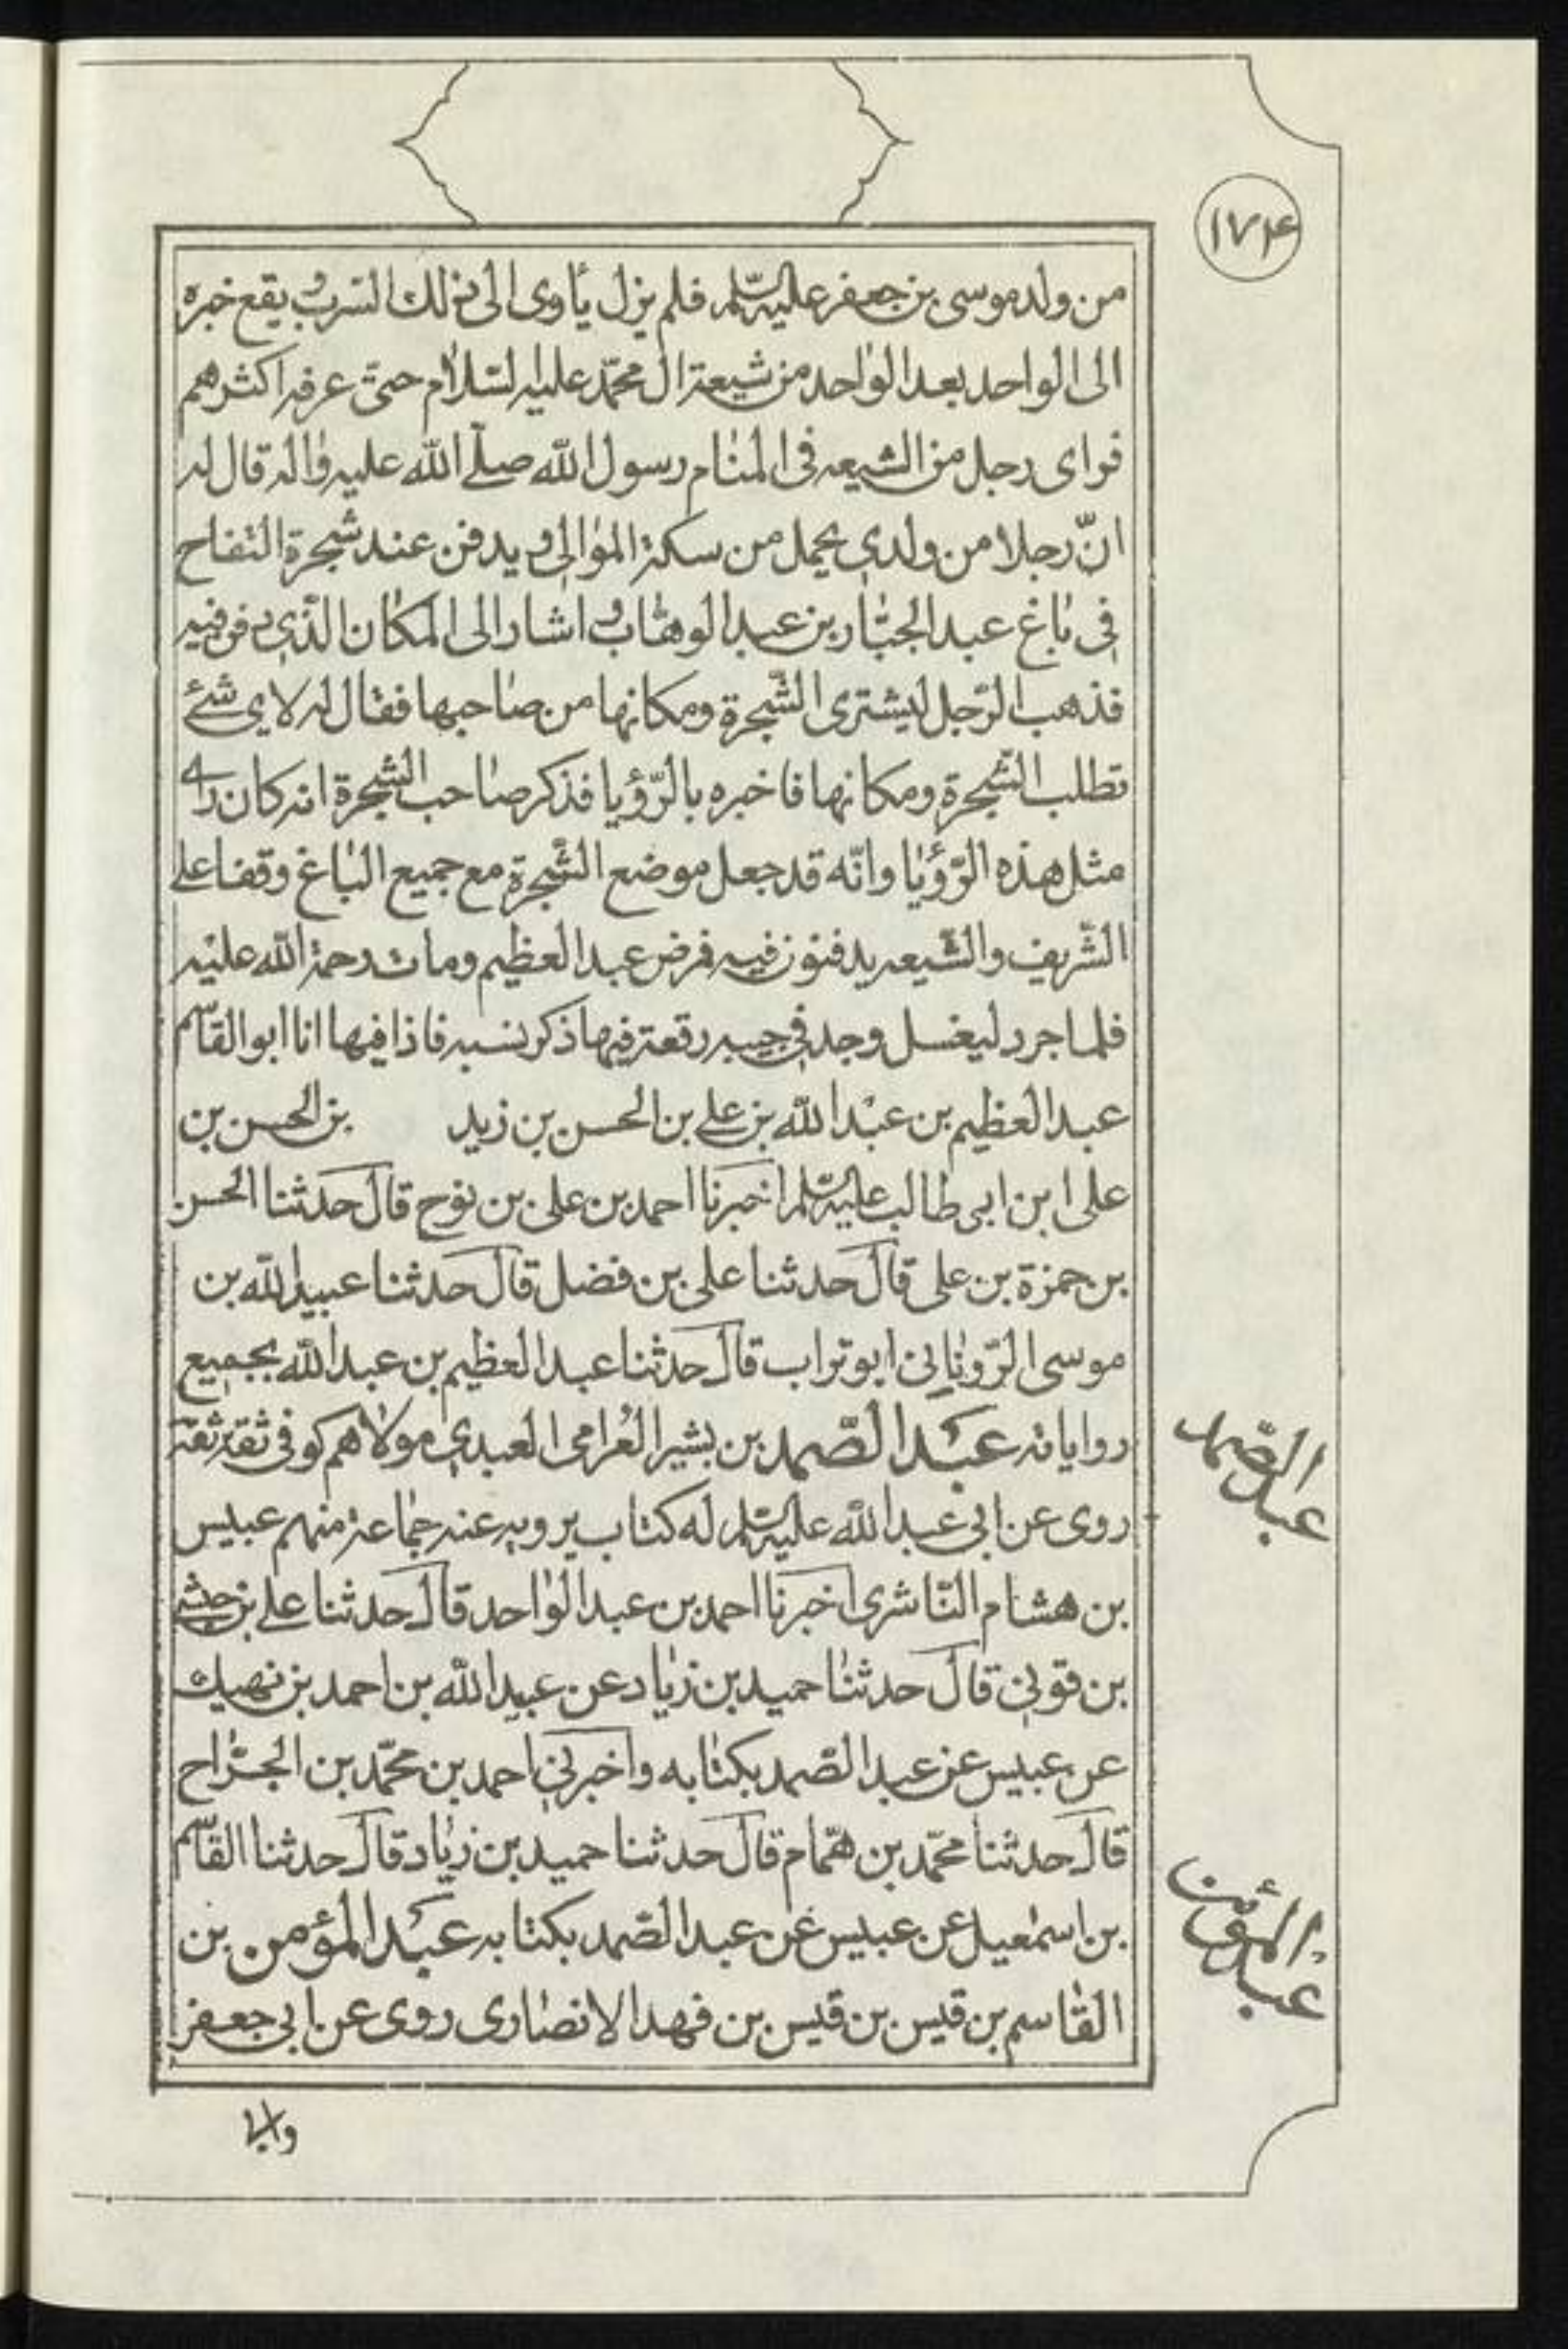 ۱۷۴
من ولد موسى بن جعفر عليه السّلم فلم يزل يأوى الى ذلك السّرب و يقع خبره
الى الواحد بعد الواحد من شيعة ال محمّد عليه السّلام حتى عرفه اكثرهم
فراى رجل من الشيعه فى المنام رسول الله صلّى الله عليه واله قال له
انّ رجلا من ولدى يحمل من سكة الموالى و يدفن عند شجرة التفاح
فى باغ عبد الجبّار بن عبد الوهّاب و اشار الى المكان الّذى دفن فيه
فذهب الرّجل ليشترى الشّجرة ومكانها من صاحبها فقال له لاى شئ
تطلب الشّجرة ومكانها فاخبره بالرّؤيا فذكر صاحب الشّجرة انه كان راى
مثل هذه الرّؤيا وانّه قد جعل موضع الشّجرة مع جميع الباغ وقفا على
الشّريف والشّيعه يدفنون فيه فرض عبد العظيم ومات رحمة الله عليه
فلما جرد ليغسل وجد فى جيبه رقعة فيها ذكر نسبه فاذا فيها انا ابو القاسم
عبد العظيم بن عبد الله بن على بن الحسن بن زيد بن الحسن بن
على ابن ابى طالب عليه السّلم اخبرنا احمد بن على بن نوح قال حدثنا الحسن
بن حمزة بن على قال حدثنا على بن فضل قال حدثنا عبيد الله بن
موسى الرّويانى ابو تراب قال حدثنا عبد العظيم بن عبد الله بجميع
رواياته عبد الصّمد بن بشير العُرامى العبدى مولاهم كوفى ثقة ثقة
روى عن ابى عبد الله عليه السّلم له كتاب يرويه عنه جماعة منهم عبيس
بن هشام النّاشرى اخبرنا احمد بن عبد الواحد قال حدثنا على بن حبشى
بن قونى قال حدثنا حميد بن زياد عن عبيد الله بن احمد بن نهيك
عن عبيس عن عبد الصّمد بكتابه واخبرنى احمد بن محمّد بن الجرّاح
قال حدثنا محمّد بن همّام قال حدثنا حميد بن زياد قال حدثنا القاسم
بن اسمعيل عن عبيس عن عبد الصّمد بكتابه عبد المؤمن بن
القاسم بن قيس بن قيس بن فهد الانصارى روى عن ابى جعفر
عبد الصّمد
عبد المؤمن
وابى